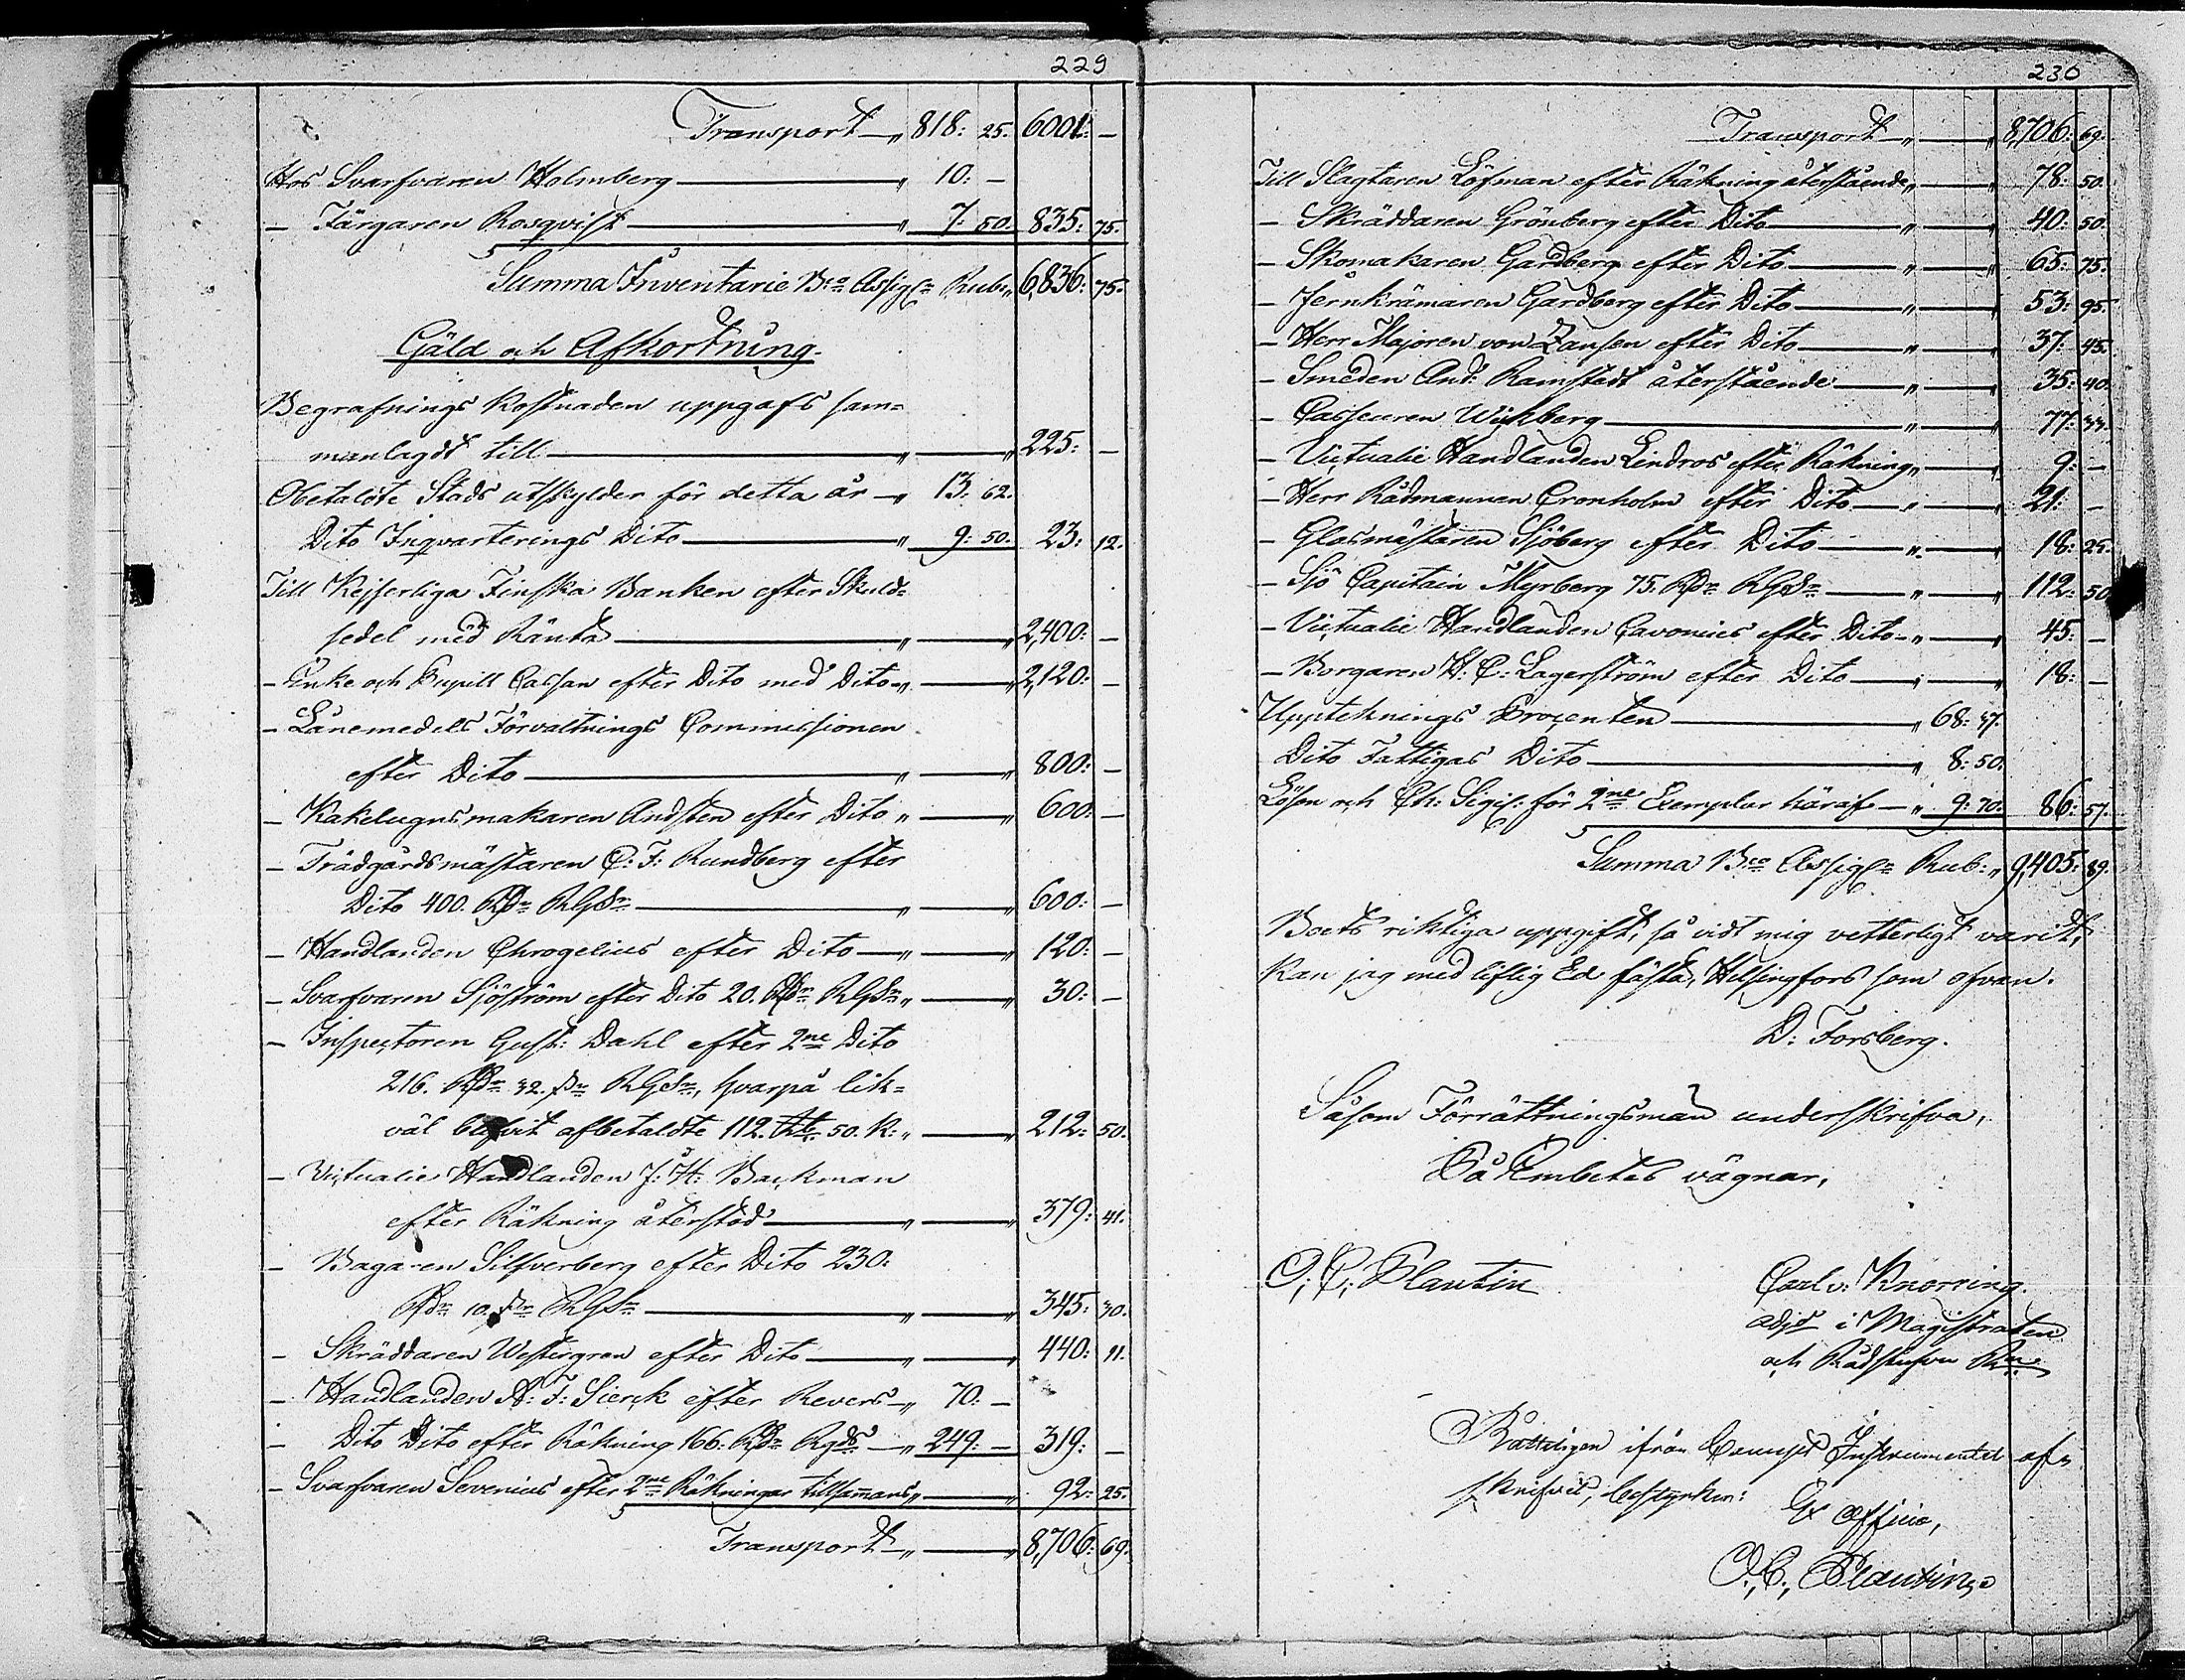 229
Transport 818: 25. 6001: —
Hos Svarfvaren Holmberg 10: —
— Färgaren Rosqvist 7: 50. 835: 75.
Summa Inventarie Bco Assigne Rub: 6,836: 75.
Gäld och Afkortning.
Begrafnings kostnaden uppgafs sam=
manlagdt till 225: —
Obetaldte Stads utskylder för detta år 13. 62.
Dito Inqvarterings Dito 9: 50. 23: 12.
Till Kejserliga Finska Banken efter Skuld=
sedel med Ränta 2,400: —
— Enke och Pupill Cassan efter Dito med Dito 2,120: —
— Lånemedels Förvaltnings Commissionen
efter Dito 800: —
— Kakelugnsmakaren Andsten efter Dito 600: —
— Trädgårdsmästaren C: F: Rundberg efter
Dito 400. Rdr RGSr 600: —
— Handlanden Chrogelius efter Dito 120: —
— Svarfvaren Sjöström efter Dito 20. Rdr RGSr 30: —
— Inspectoren Gust: Dahl efter 2ne Dito
216. Rdr 32. sr RGSr, hvarpå lik=
väl blifvit afbetaldte 112. Rb 50. K: 212: 50.
— Victualie Handlanden J: H: Backman
efter Räkning återstod 379: 41.
— Bagaren Silfverberg efter Dito 230:
Rdr 10. sr RGSr 345: 30.
— Skräddaren Westergren efter Dito 440: 11.
— Handlanden A: F: Sierck efter Revers 70: —
— Dito Dito efter Räkning 166: Rdr Rgds 249: — 319: —
— Svarfvaren Sevenius efter 2ne Räkningar tillsammans 92: 25.
Transport 8,706: 69.
230
Transport 8,706: 69.
Till Slagtaren Löfman efter Räkning återstående 78: 50.
— Skräddaren Grönberg efter Dito 40: 50.
— Skomakaren Gardberg efter Dito 65: 75.
— Jernkrämaren Gardberg efter Dito 53: 95.
— Herr Majoren von Zansen efter Dito 37: 45.
— Smeden And: Ramstedt återstående 35: 40.
— Casseuren Wickberg 77: 33.
— Victualie Handlanden Lindros efter Räkning 9: —
— Herr Rådmannen Cronholm efter Dito 21: —
— Glasmästaren Sjöberg efter Dito 18: 25.
— Sjö Capitain Myrberg 75. Rdr RGSr 112: 50.
— Victualie Handlanden Cavonius efter Dito 45: —
— Borgaren H: C: Lagerström efter Dito 18: —
Uppteknings Procenten 68: 37.
Dito Fattigas Dito 8: 50.
Lösen och Ch: Sigil: för 2ne Exemplar häraf 9: 70. 86: 57.
Summa Bco Assigne Rub: 9,405: 89.
Boets riktiga uppgift, så vidt mig vetterligt varit,
kan jag med liflig Ed fästa, Helsingfors som ofvan.
D: Forsberg.
Såsom Förrättningsman underskrifva,
På Embetes vägnar,
O: C: Plantin
Carl v: Knorring.
adjt i Magistraten
och Rådstufvu Rn
Rätteligen ifrån Concept Instrumentet af=
skrifvit, bestyrker: Ex officio,
O: C: Plantin